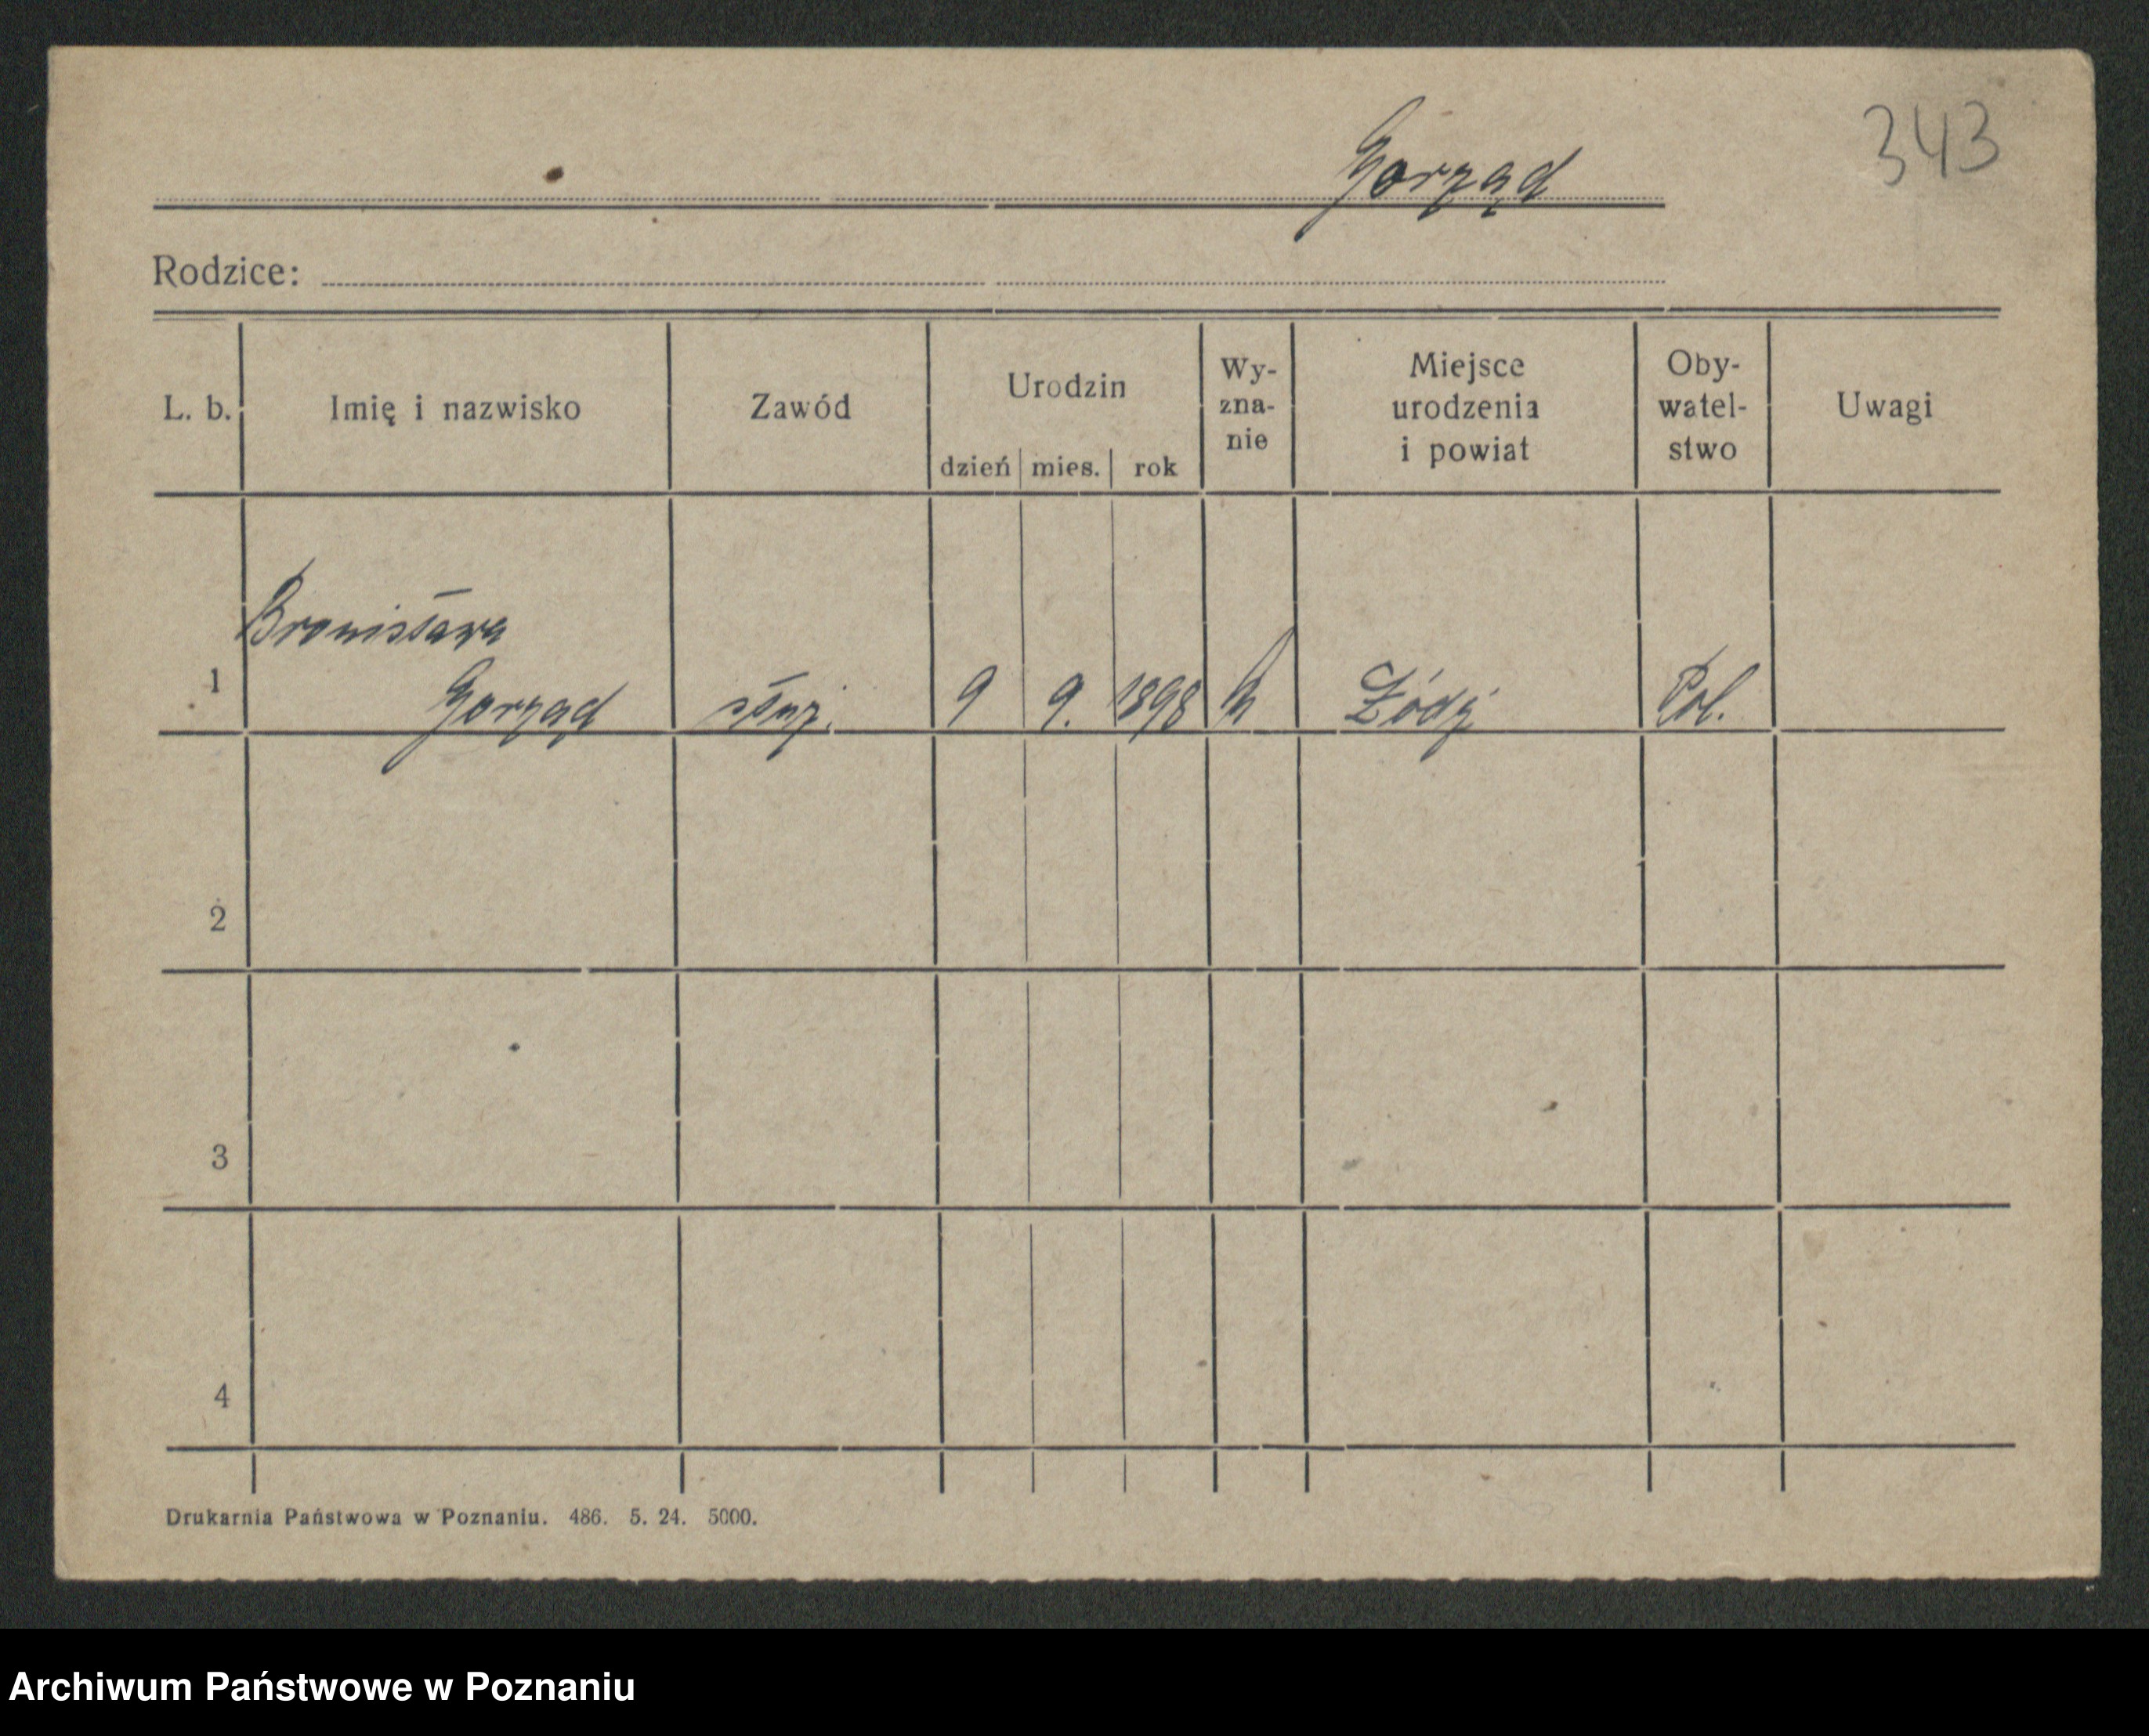 343
Gorząd
Rodzice:
L. b. Imię i nazwisko Zawód Urodzin dzień mies. rok Wy-zna-nie Miejsce urodzenia i powiat Oby-watel-stwo Uwagi
Bronisława
1 Gorząd służ. 9 9. 1898 k Łódź Pol.
2
3
4
Drukarnia Państwowa w Poznaniu. 486. 5. 24. 5000.
Archiwum Państwowe w Poznaniu